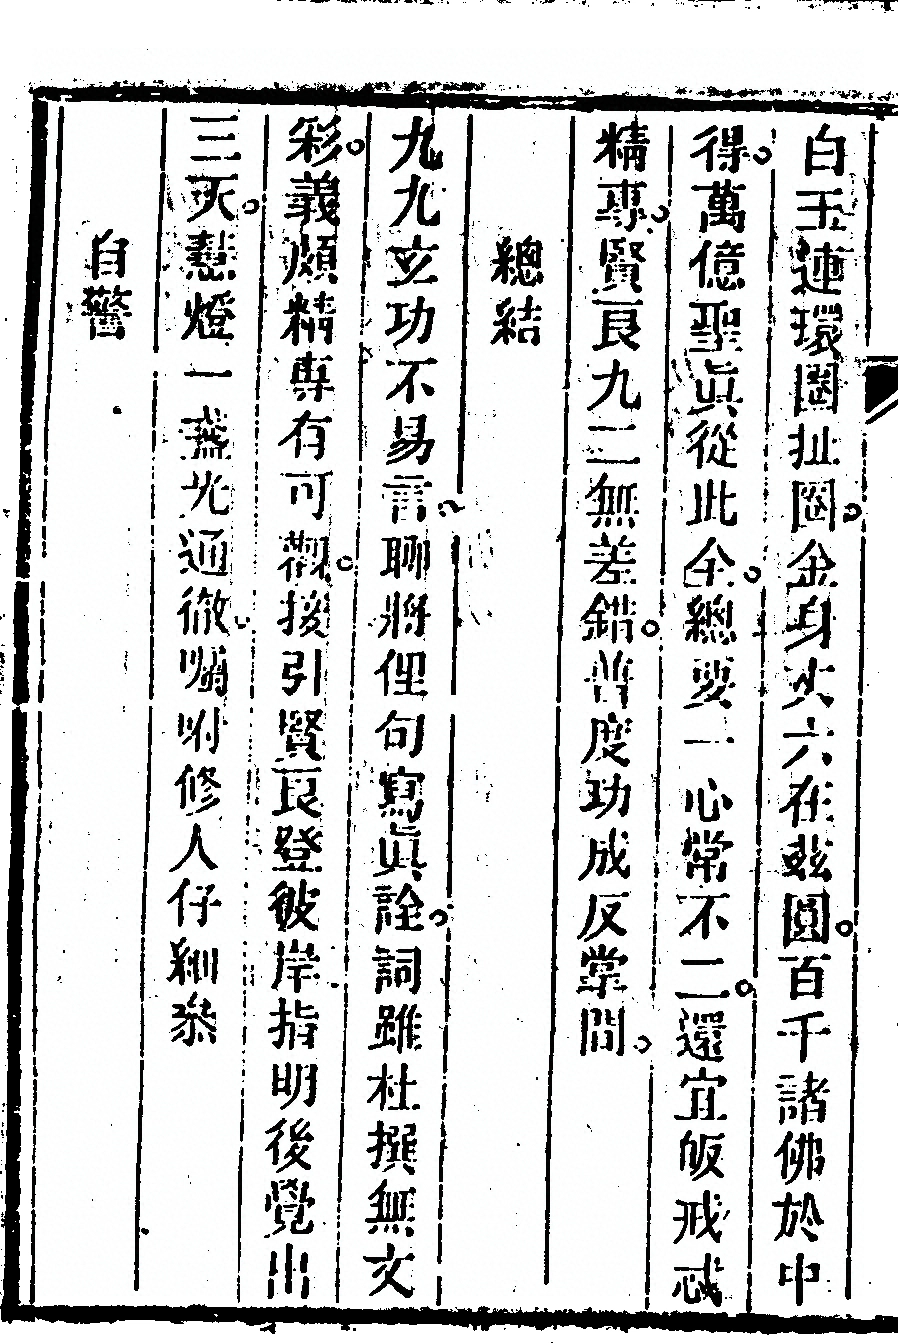 白玉連環圈扯圈金身丈六在兹圓百千諸佛於中
得萬億聖眞從此全總要一心常不二還宜皈戒忒
精專賢良九二無差錯普度功成反掌間
總結
九九玄功不易言聊將俚句寫眞詮詞雖杜撰無文
彩義頗精專有可觀接引賢良登彼岸指明後覺出
三天慧燈一盞光通徹囑咐修人仔細叅
自警